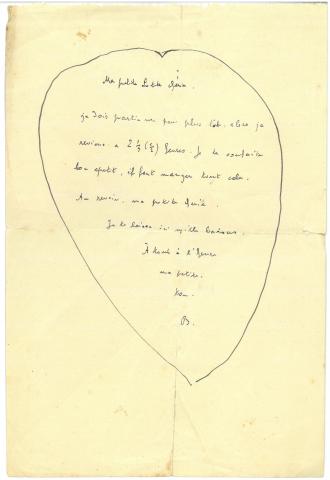 Ma petite
je dois partir un peu plus tôt, alors je
reviens a 2 ½ heures. Je te souhaite
bon apetit, il faut manger tout cela.
Au revoir, ma petite
Je te laisse ici mille baisers.
À tout à l'heure
ma petite.
Ton
B.